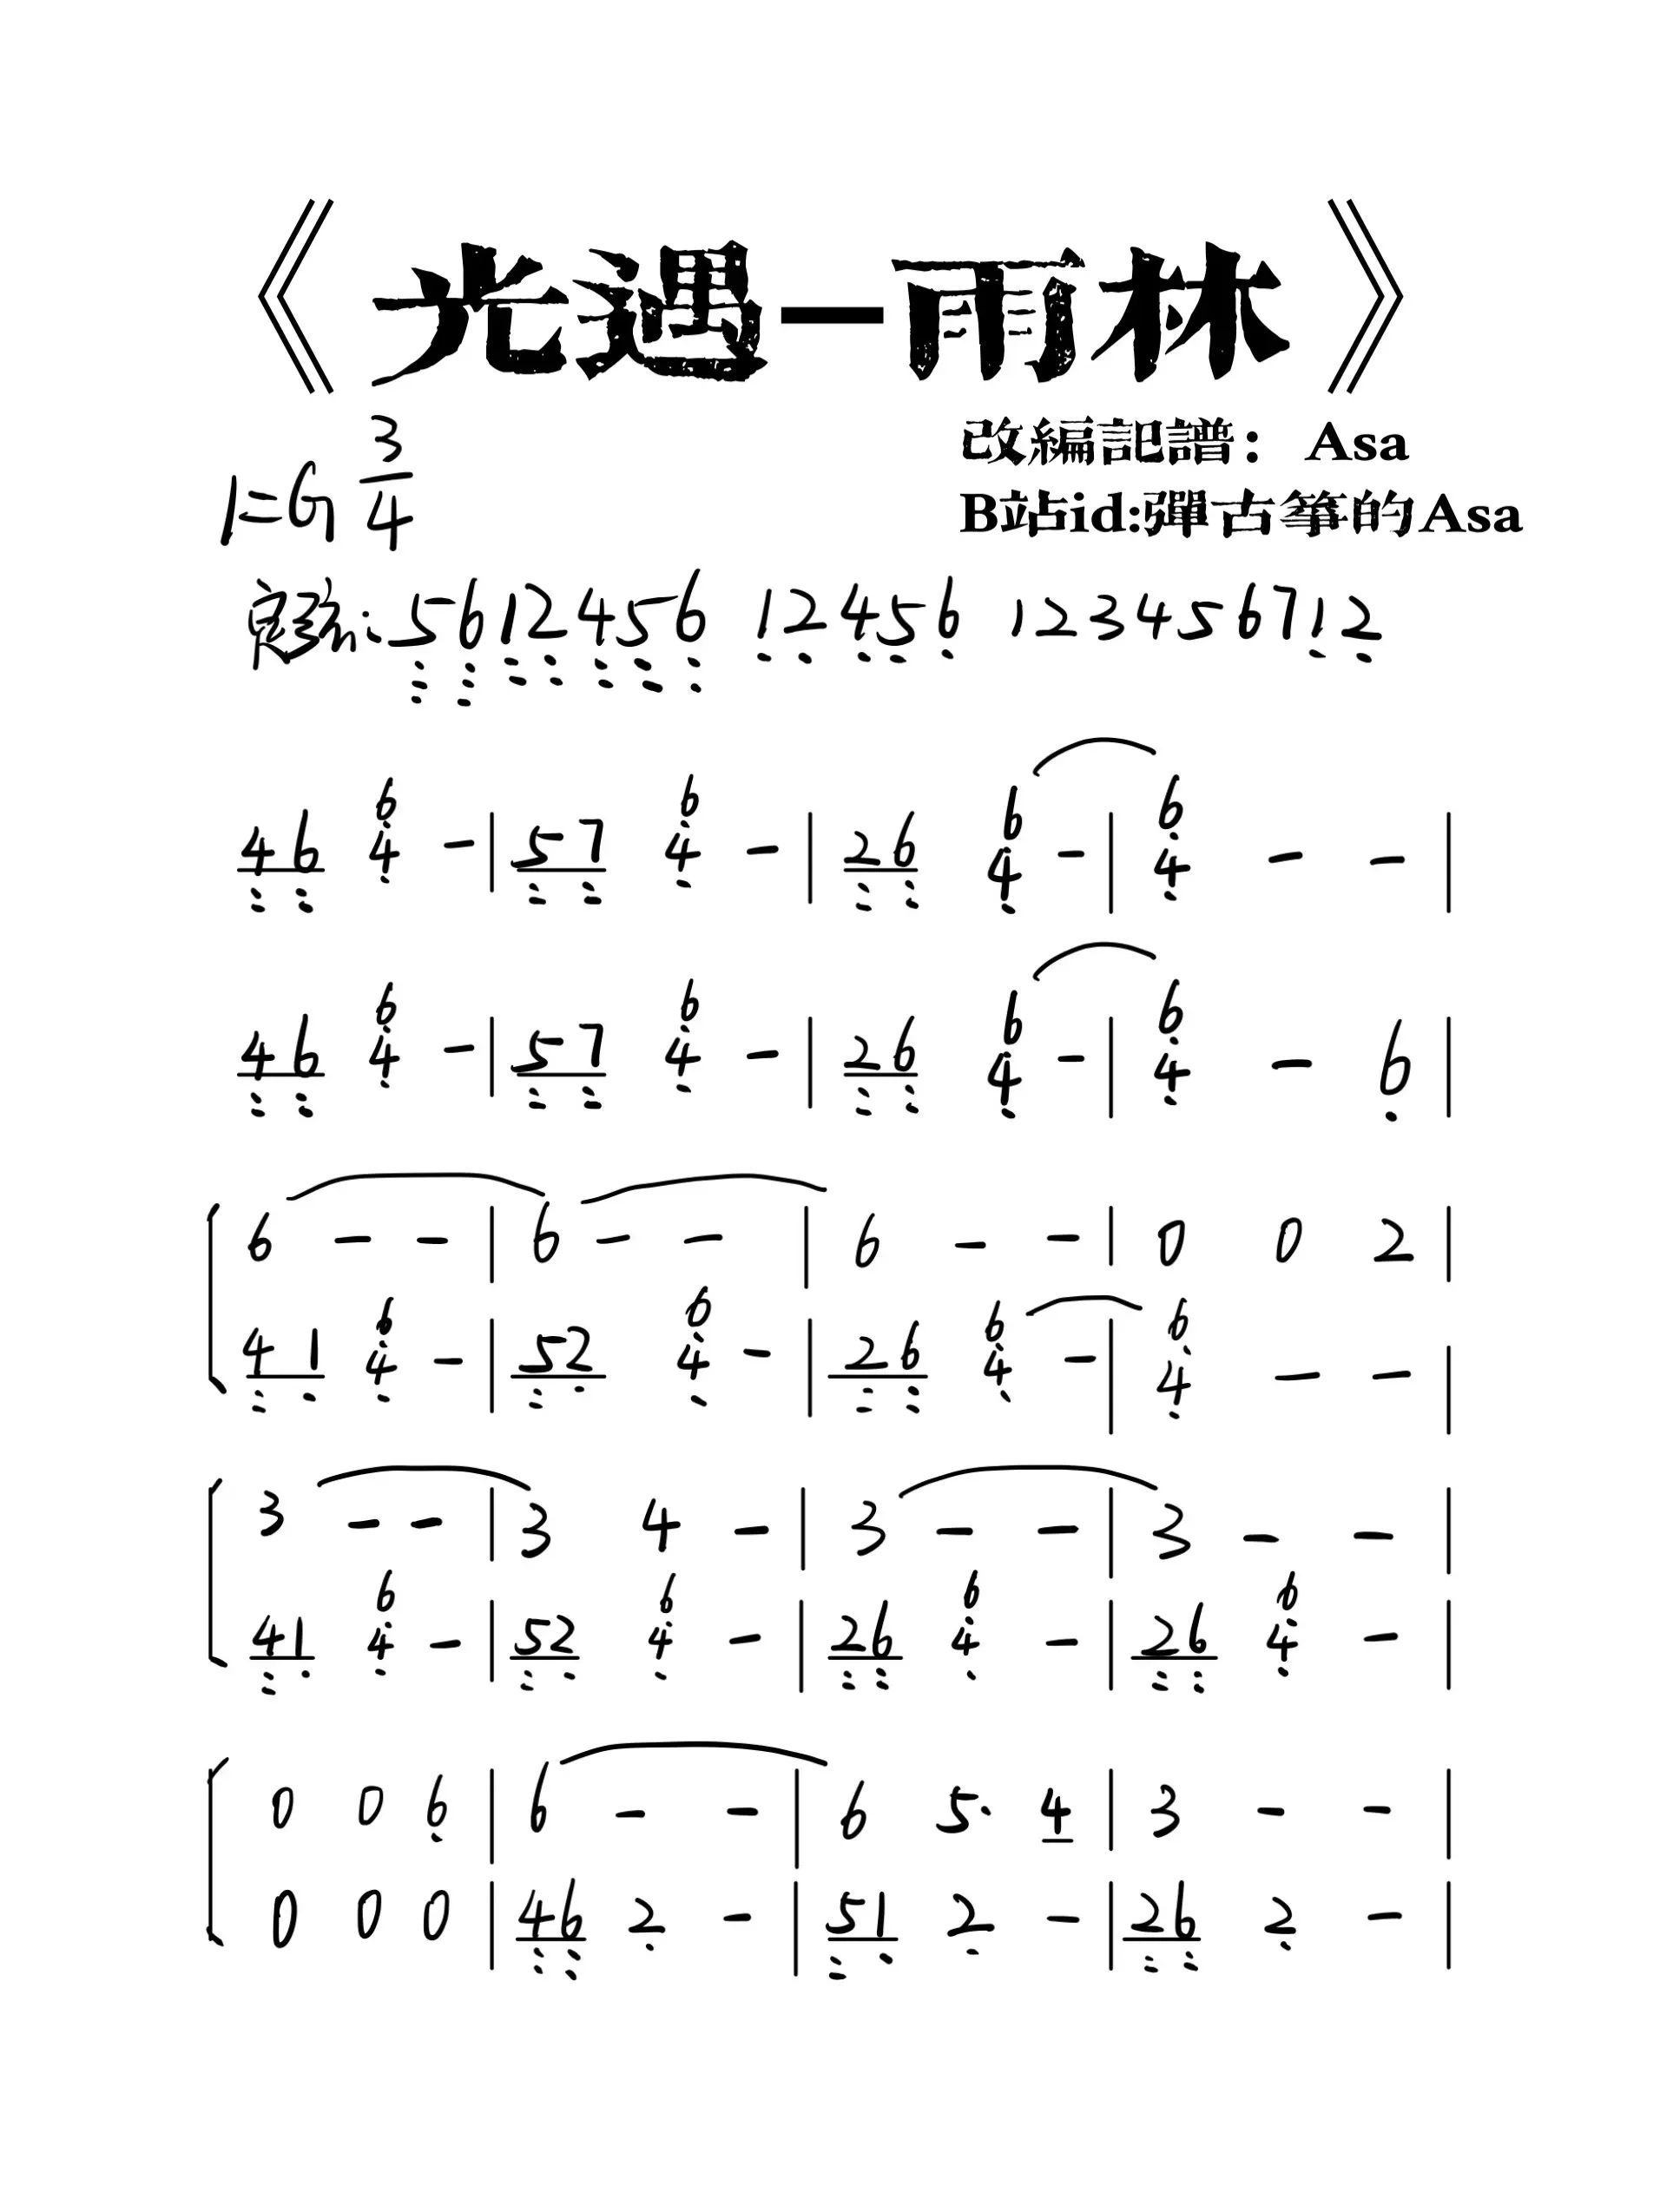 《光遇—雨林》
改編記譜： Asa
1=G 3/4
B站id:彈古箏的Asa
定弦: 5̣̣̣ 6̣̣̣ 1̣̣ 2̣̣ 4̣̣ 5̣̣ 6̣̣ 1̣ 2̣ 4̣ 5̣ 6̣ 1 2 3 4 5 6 7 1̣ 2̣
4̣̣6̣̣ 6̣/4̣ - | 5̣̣7̣̣ 6̣/4̣ - | 2̣̣6̣̣ 6̣/4̣ - | 6̣/4̣ - - |
4̣̣6̣̣ 6̣/4̣ - | 5̣̣7̣̣ 6̣/4̣ - | 2̣̣6̣̣ 6̣/4̣ - | 6̣/4̣ - 6̣ |
6 - - | 6 - - | 6 - - | 0 0 2 |
4̣̣1̣ 6̣/4̣ - | 5̣̣2̣ 6̣/4̣ - | 2̣̣6̣̣ 6̣/4̣ - | 6̣/4̣ - - |
3 - - | 3 4 - | 3 - - | 3 - - |
4̣̣1̣ 6̣/4̣ - | 5̣̣2̣ 6̣/4̣ - | 2̣̣6̣̣ 6̣/4̣ - | 2̣̣6̣̣ 6̣/4̣ - |
0 0 6̣ | 6 - - | 6 5· 4 | 3 - - |
0 0 0 | 4̣̣6̣̣ 2̣ - | 5̣̣1̣ 2̣ - | 2̣̣6̣̣ 2̣ - |